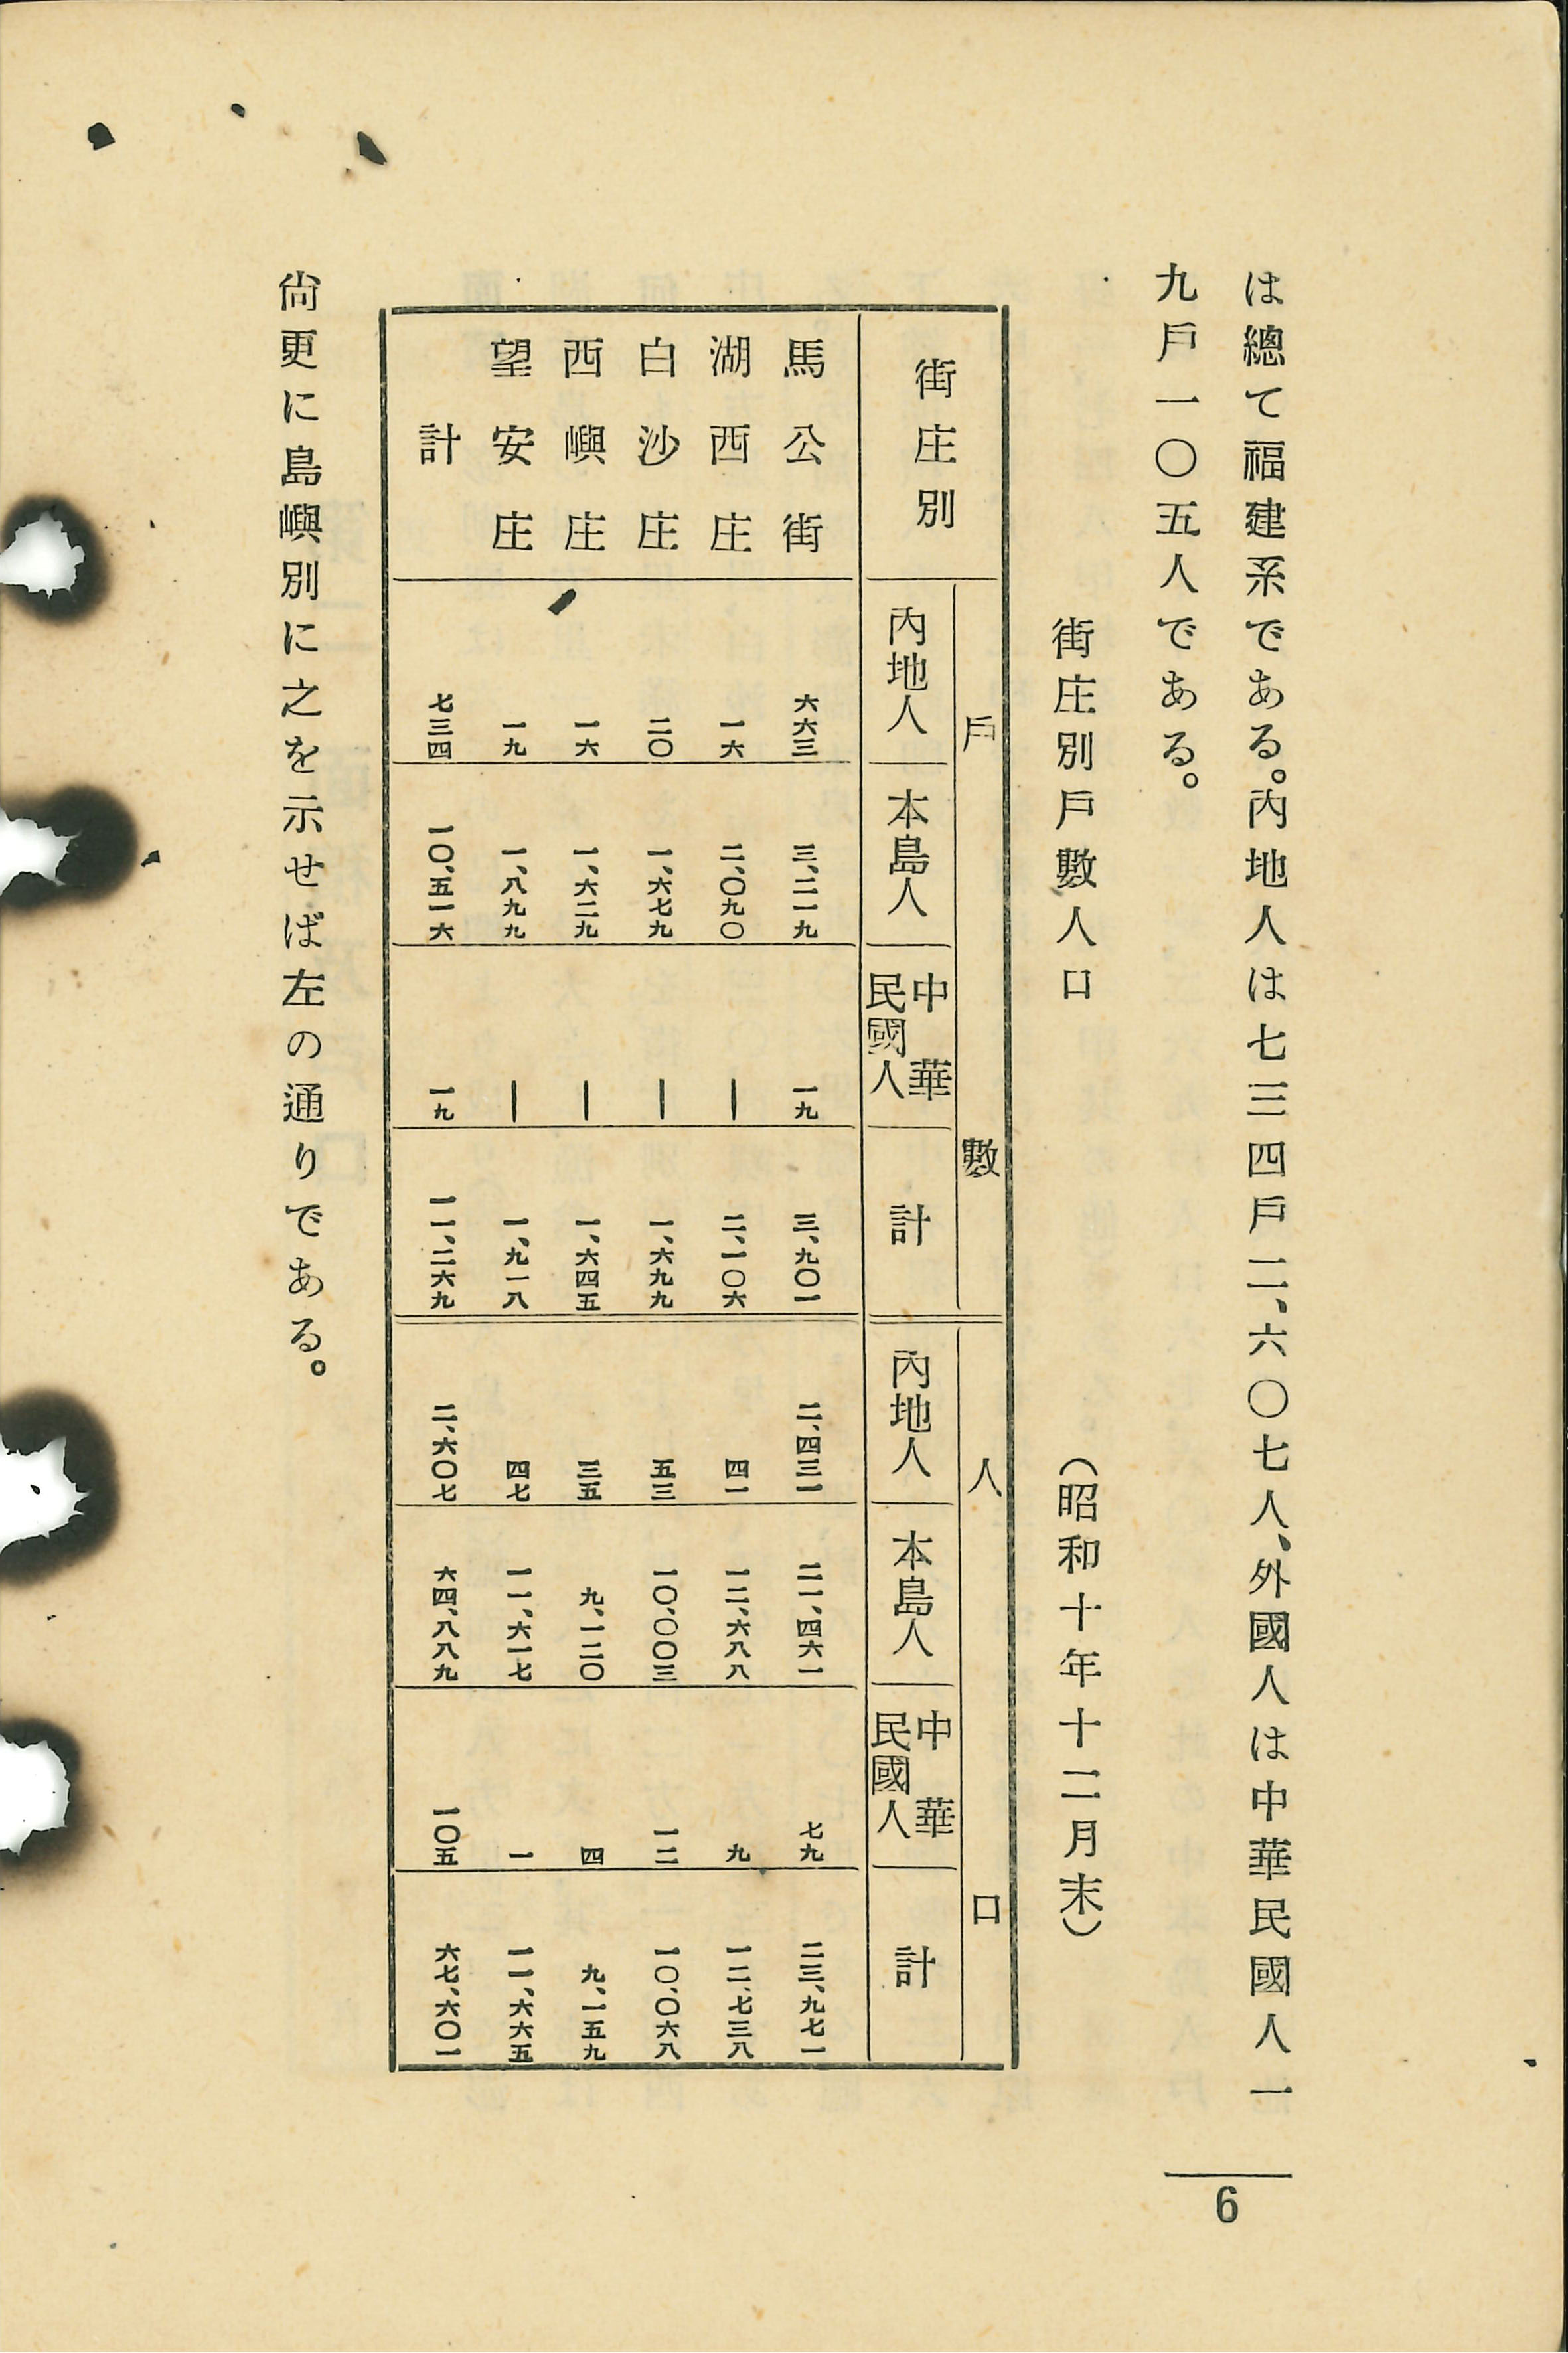 は總て福建系である。內地人は七三四戶二、六〇七人、外國人は中華民國人一
九戶一〇五人である。
街庄別戶數人口 (昭和十年十二月末)
街庄別 戶數 人口
內地人 本島人 中華民國人 計 內地人 本島人 中華民國人 計
馬公街 六六三 三、二一九 一九 三、九〇一 二、四三一 二一、四六一 七九 二三、九七一
湖西庄 一六 二、〇九〇 ー 二、一〇六 四一 一二、六八八 九 一二、七三八
白沙庄 二〇 一、六七九 ー 一、六九九 五三 一〇、〇〇三 一二 一〇、〇六八
西嶼庄 一六 一、六二九 ー 一、六四五 三五 九、一二〇 四 九、一五九
望安庄 一九 一、八九九 ー 一、九一八 四七 一一、六一七 一 一一、六六五
計 七三四 一〇、五一六 一九 一一、二六九 二、六〇七 六四、八八九 一〇五 六七、六〇一
尙更に島嶼別に之を示せば左の通りである。
6